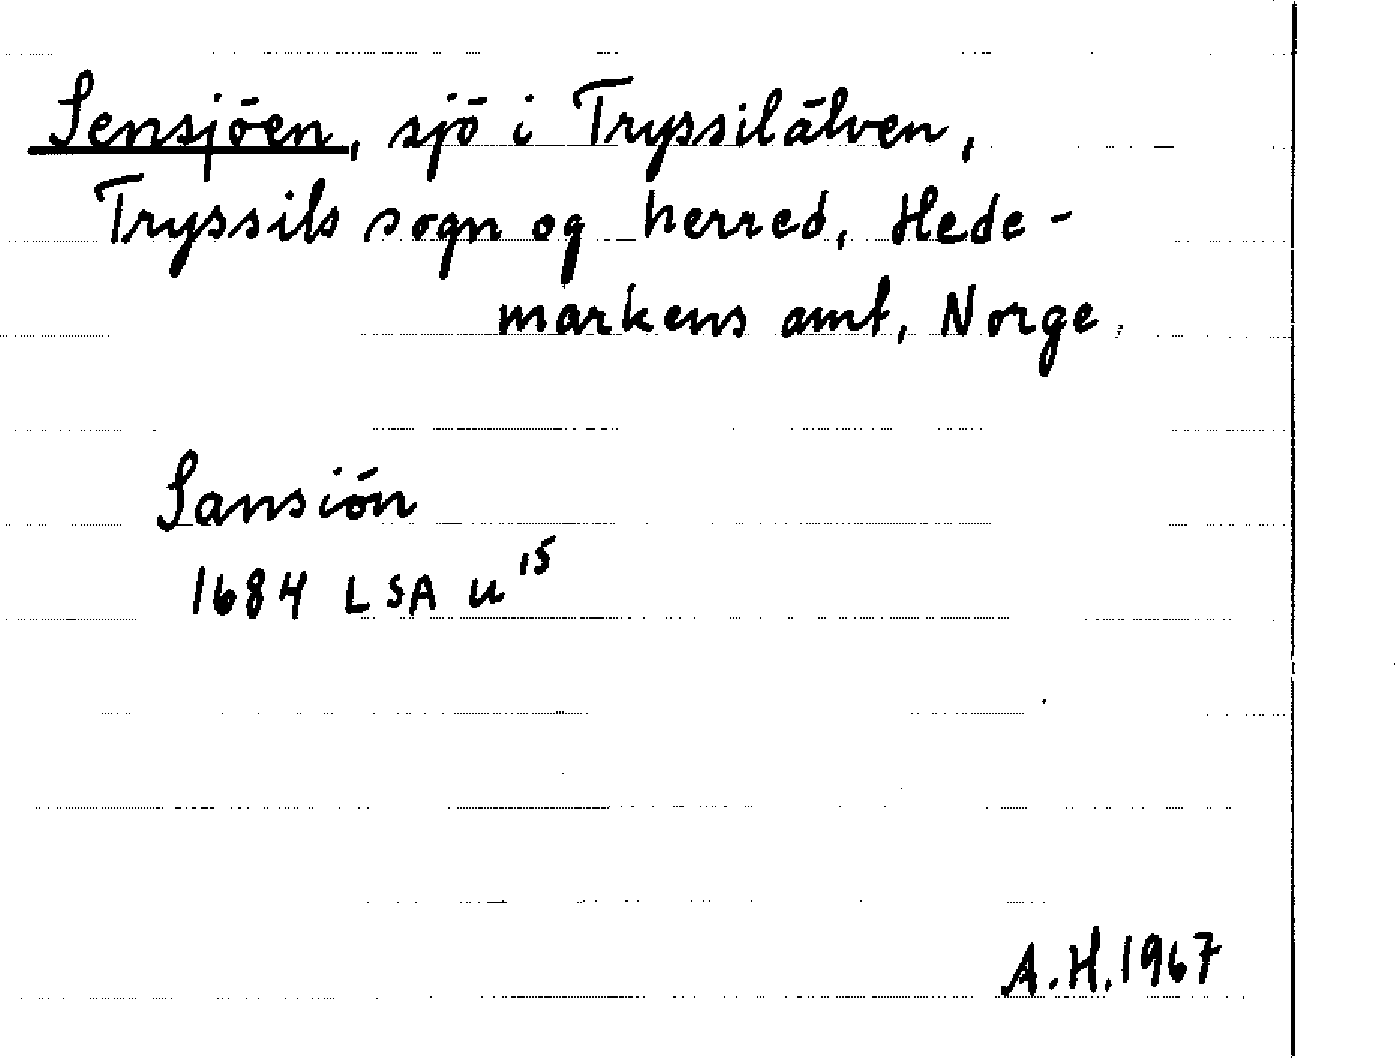 Sensjöen, sjö i Tryssilälven,
Tryssils sogn og herred, Hede-
markens amt, Norge.
Sansiön
1684 LSA U¹⁵
A.H. 1967